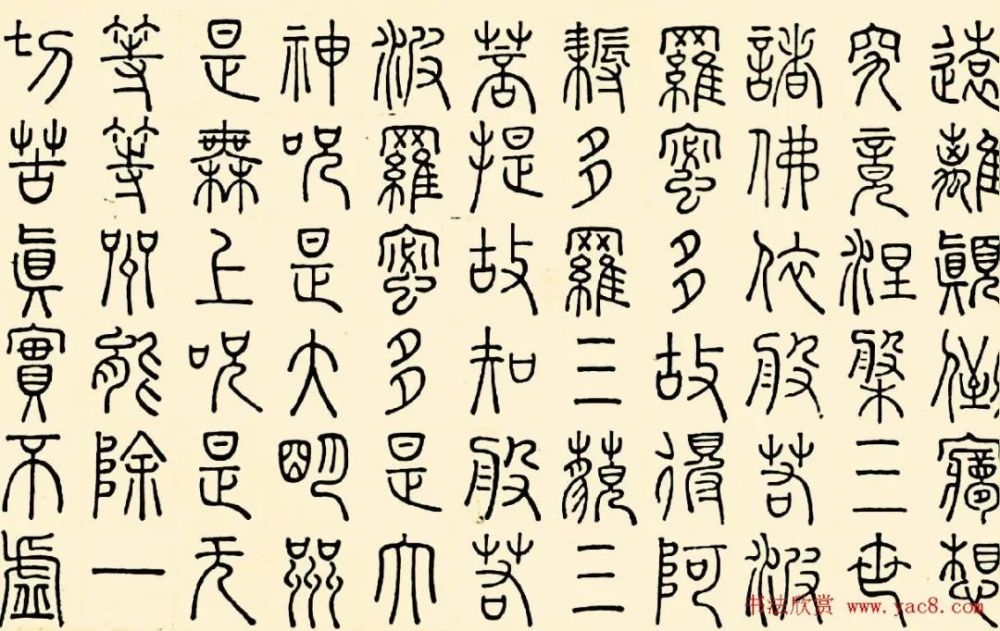 遠離顛倒夢想
究竟涅槃三世
諸佛依般若波
羅蜜多故得阿
耨多羅三藐三
菩提故知般若
波羅蜜多是大
神咒是大明咒
是無上咒是无
等等咒能除一
切苦眞實不虛
书法欣赏 www.yac8.com